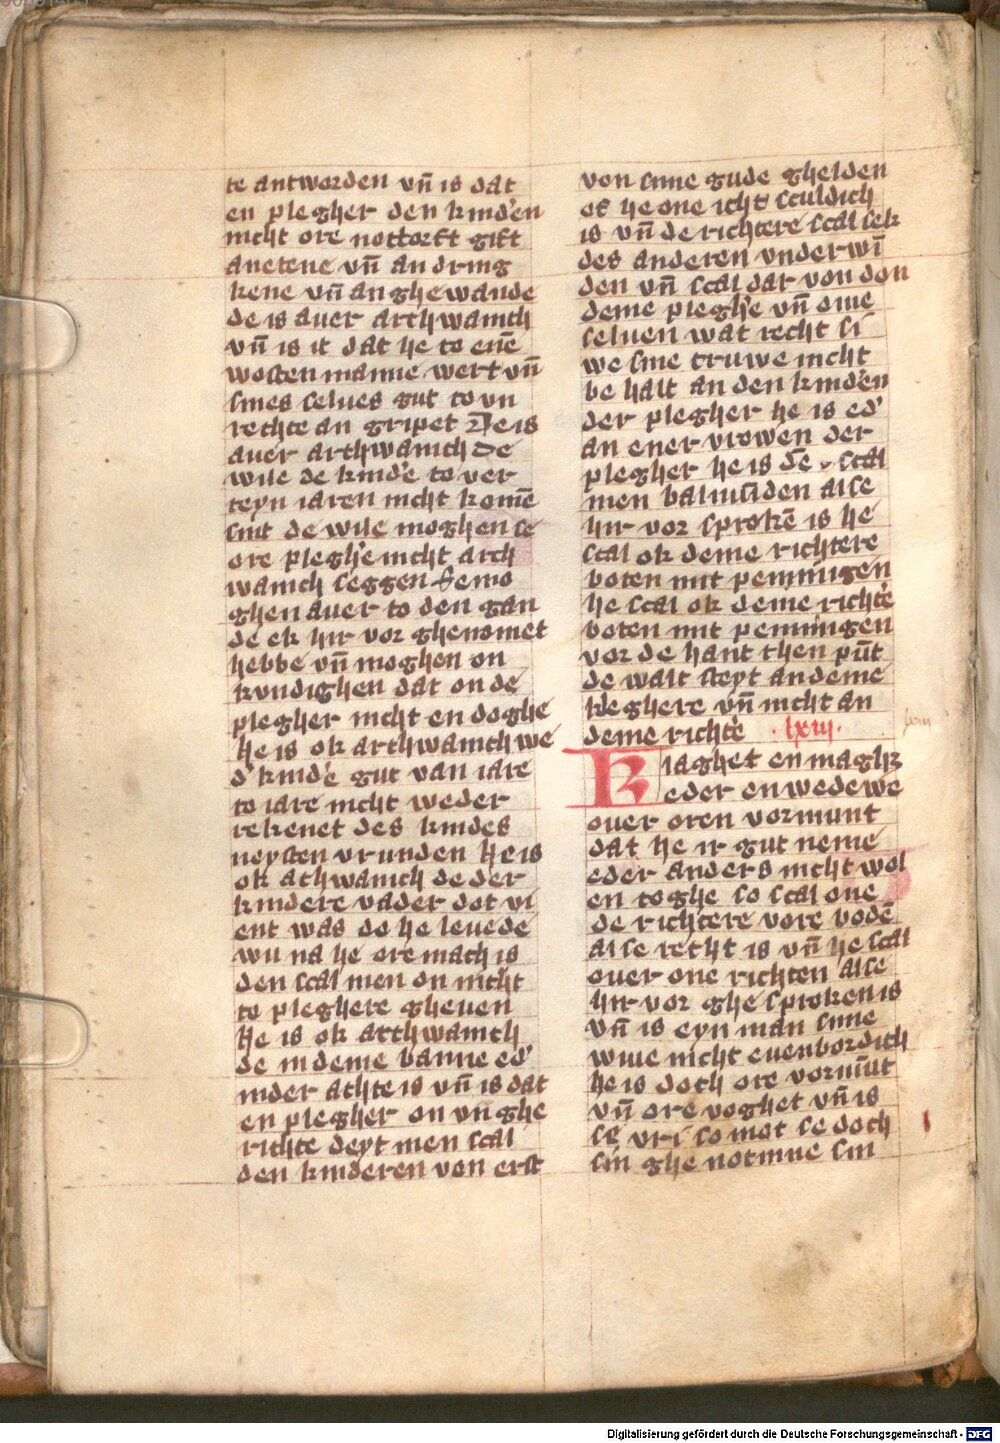 te antworden vn̄ is dat
en plegher den kind'en
nicht ore nottorft gift
an etene vn̄ an dring
kene vn̄ an ghewande
de is auer archwanich
vn̄ is it dat he to enē
wosten manne wert vn̄
sines selues gut to vn
rechte an gripet De is
auer archwanich De
wile de kind'e to ver
teyn iaren nicht komē
sint de wile moghen se
ore plegh'e nicht arch
wanich seggen Se mo
ghen auer to den gan
de ek hir vor ghenomet
hebbe vn̄ moghen on
kundighen dat on de
plegher nicht en doghe
he is ok archwanich we
d' kind'e gut van iare
to iare nicht weder
rekenet des kindes
neysten vrunden he is
ok achwanich de der
kindere vader dot vi
ent was do he leuede
wu na he ore mach is
den scal men on nicht
to pleghere gheuen
he is ok archwanich
de in deme banne ed'
inder achte is vn̄ is dat
en plegher on vn ghe
richte deyt men scal
den kinderen von erst
von sine gude ghelden
of he one icht sculdich
is vn̄ de richtere scal sek
des anderen vnderwī
den vn̄ scal dar von don
deme plegh'e vn̄ ome
seluen wat recht si
we sine truwe nicht
be halt an den kind'en
der plegher he is ed'
an ener vrowen der
plegher he is de scal
men balmūden alse
hir vor sprokē is he
scal ok deme richtere
boten mit penningen
he scal ok deme richt'e
boten mit penningen
vor de hant then pūt
de walt steyt an deme
kleghere vn̄ nicht an
deme richte · lxiij ·
Klaghet en maghet
eder en wedewe
ouer oren vormunt
dat he ir gut neme
eder anders nicht wol
en toghe so scal one
de richtere vore bodē
alse recht is vn̄ he scal
ouer one richten alse
hir vor ghe sproken is
vn̄ is eyn man sine
wiue nicht euenbordich
he is doch ore vormūt
vn̄ ore voghet vn̄ is
se vri so mot se doch
sin ghenotinne sin